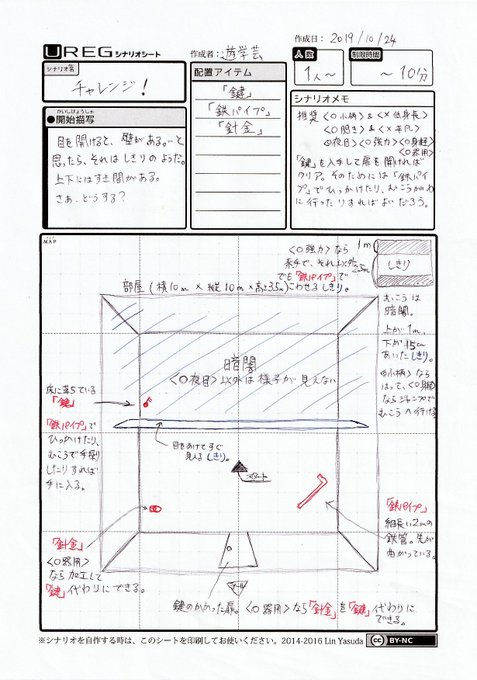 作成日: 2019/10/24
UREG シナリオシート
作成者: 遊学芸
人数
1人~
制限時間
~10分
シナリオ名
チャレンジ!
配置アイテム
「鍵」
「鉄パイプ」
「針金」
かいしびょうしゃ
●開始描写
目を開けると、壁がある。…と
思ったら、それはしきりのようだ。
上下にはすき間がある。
さぁ、どうする?
シナリオメモ
推奨 〈○小柄〉&〈×低身長〉
〈○夜目〉〈○強力〉〈○身軽〉
〈○器用〉
「鍵」を入手して扉を開ければ
クリア。そのためには「鉄パイ
プ」でひっかけたり、むこうがわ
に行ったりすればよいだろう。
MAP
〈○強力〉なら
素手で、それ以外
でも「鉄パイプ」で
こわせるしきり。
1m
2.5m
しきり
部屋(横10m×縦10m×高さ3.5m)
むこうは
暗闇。
上が1m、
下が15cm
あいたしきり。
〈○小柄〉なら
はって、〈○身軽〉
ならジャンプで
むこうへ行ける
暗闇
〈○夜目〉以外は様子が見えない
床に落ちている
「鍵」
「鉄パイプ」で
ひっかけたり、
むこうで手探り
したりすれば
手に入る。
目をあけてすぐ
見えるしきり。
スタート
「針金」
〈○器用〉
なら加工して
「鍵」代わりにできる。
「鉄パイプ」
細長い2mの
鉄管。先が
曲がっている。
ゴール
鍵のかかった扉。〈○器用〉なら「針金」を「鍵」代わりに
できる。
※シナリオを自作する時は、このシートを印刷してお使いください。2014-2016 Lin Yasuda
cc BY-NC